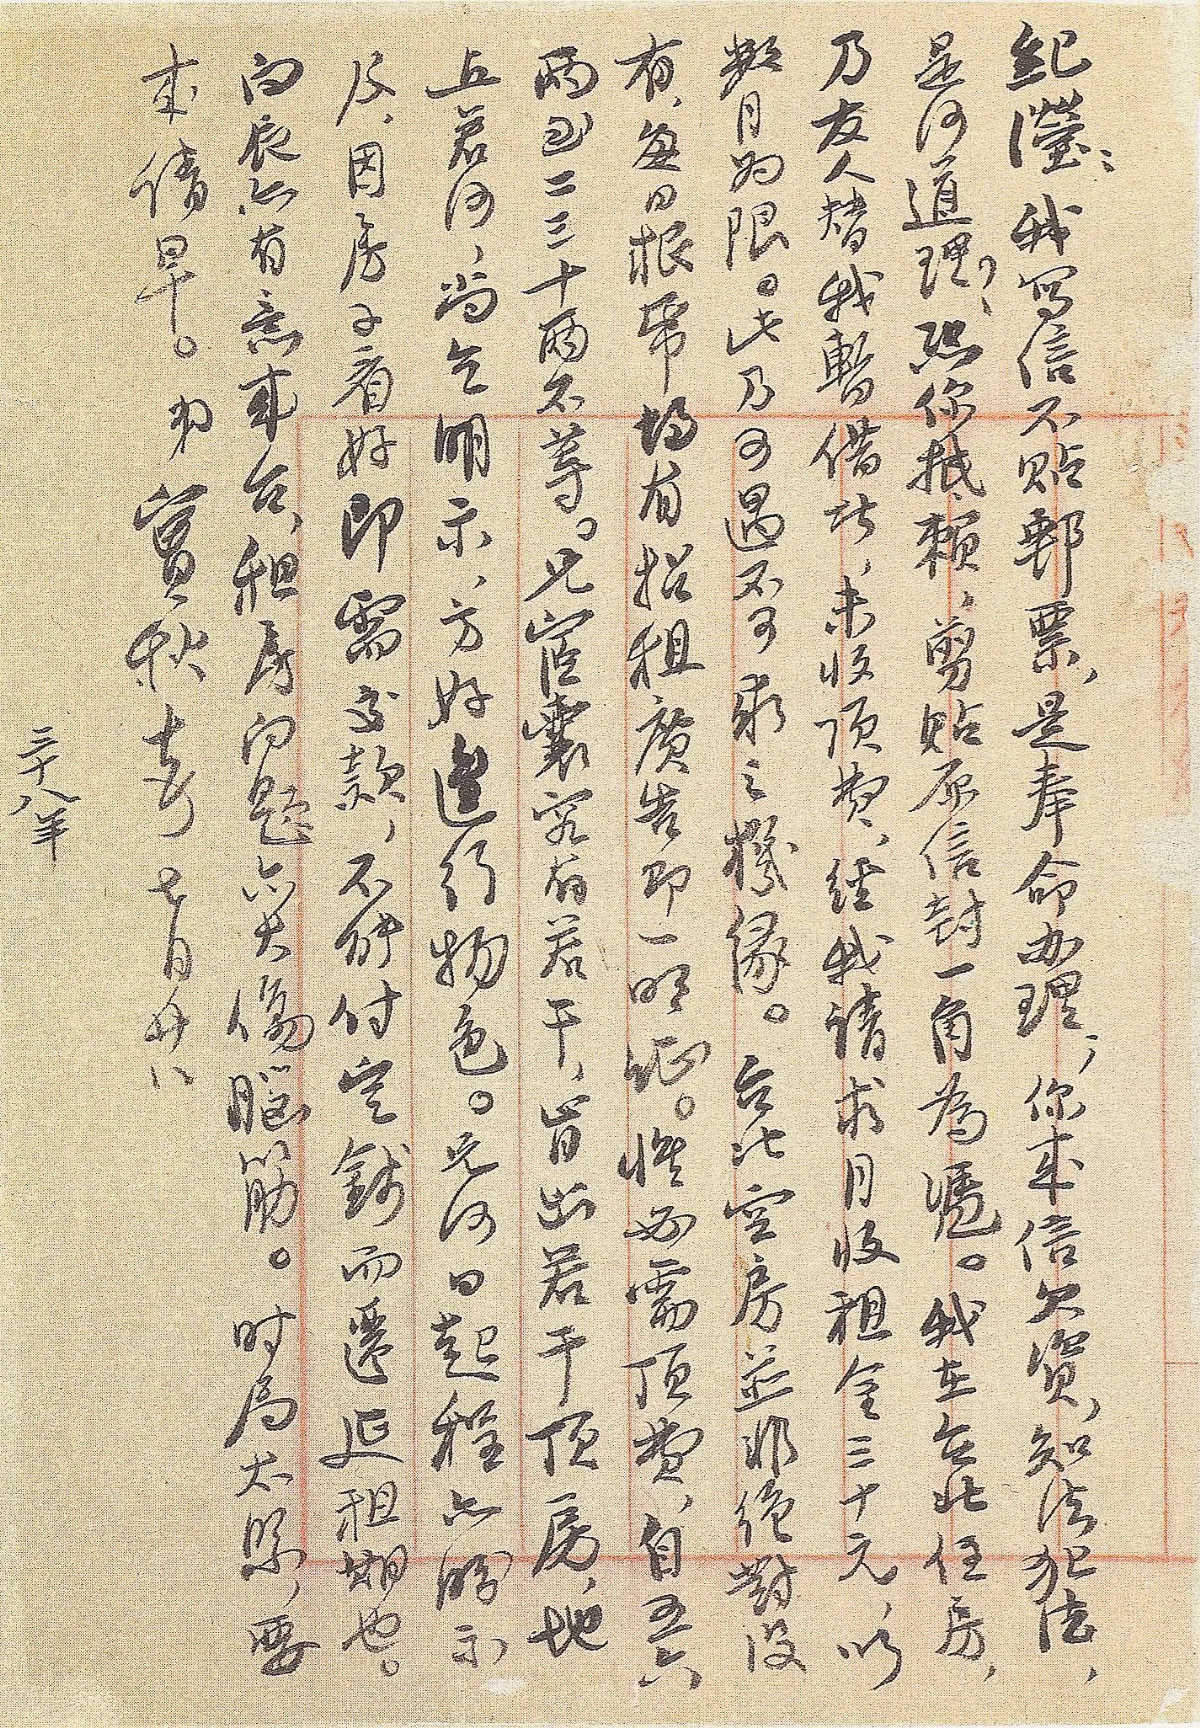 紀瀅：我写信不貼郵票，是奉命办理，你来信欠資，知法犯法，
是何道理？恐你抵賴，剪貼原信封一角為憑。我在台北住房，
乃友人替我暫借者，未收頂費，經我請求月收租金三十元，以
數月为限。此乃可遇不可求之機緣。台北空房並非絕對没
有，每日報紙均有招租廣告即一明証。惟必需頂費，自五六
兩至二三十兩不等。兄宦囊究有若干，肯出若干頂房，地
点若何，尚乞明示，方好進行物色。兄何日起程亦盼示
及，因房子看好即需交款，不能付定錢而遷延租期也。
向辰亦有意来台，租房问題亦大傷腦筋。时局太緊，要
来請早。弟實秋 七月廿八
三十八年